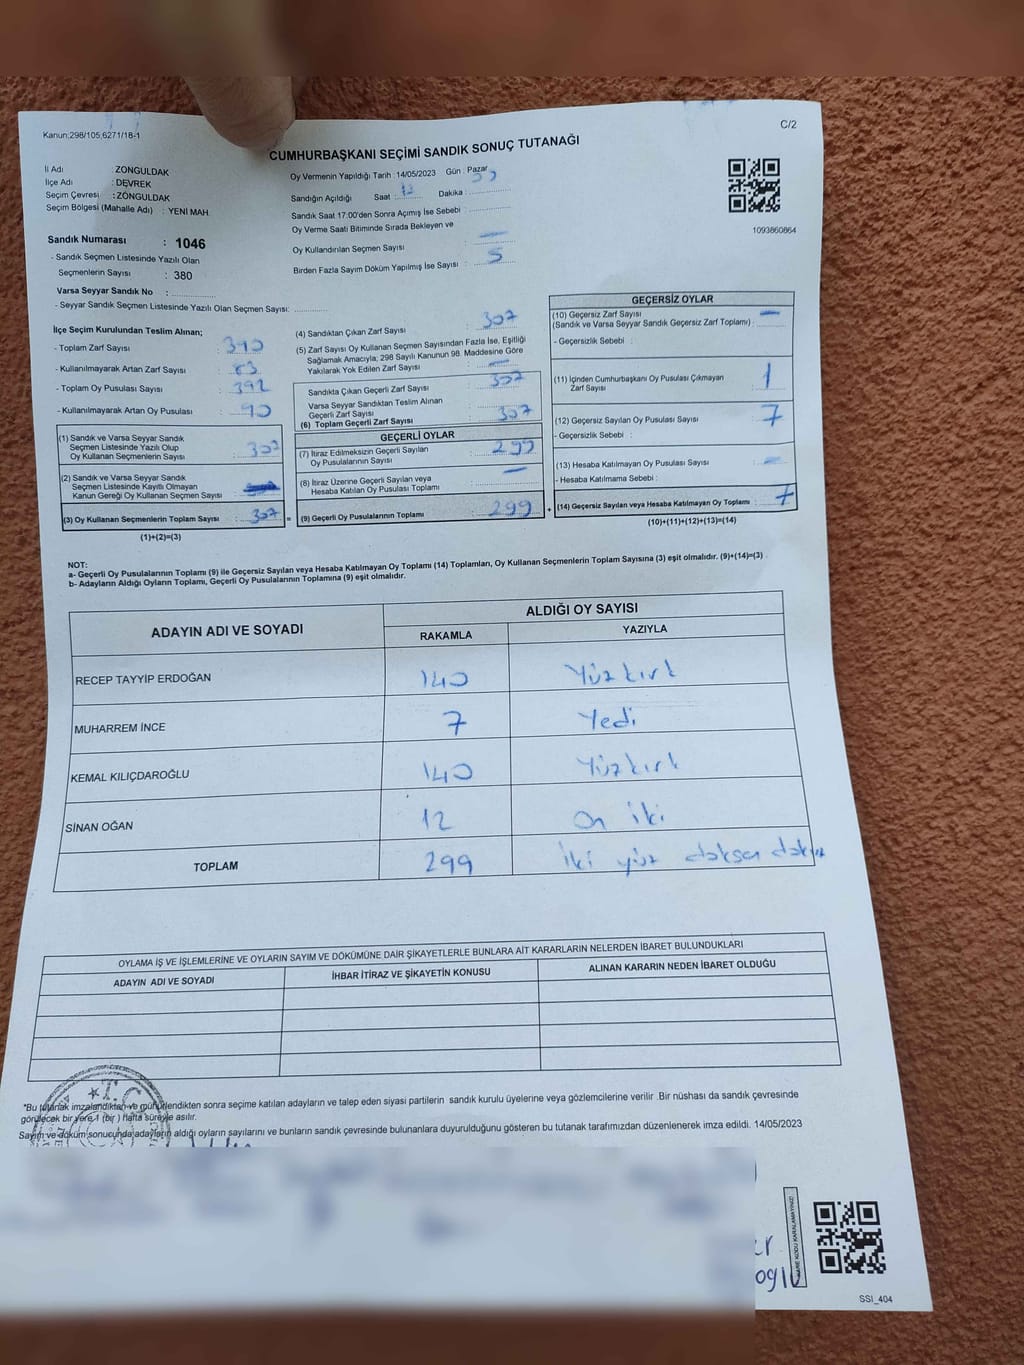 Kanun;298/105,6271/18-1
C/2
CUMHURBAŞKANI SEÇİMİ SANDIK SONUÇ TUTANAĞI
İl Adı : ZONGULDAK
İlçe Adı : DEVREK
Seçim Çevresi : ZONGULDAK
Seçim Bölgesi (Mahalle Adı) : YENİ MAH.
Sandık Numarası : 1046
- Sandık Seçmen Listesinde Yazılı Olan
Seçmenlerin Sayısı : 380
Varsa Seyyar Sandık No :
- Seyyar Sandık Seçmen Listesinde Yazılı Olan Seçmen Sayısı:
Oy Vermenin Yapıldığı Tarih : 14/05/2023 Gün : Pazar
Sandığın Açıldığı Saat : Dakika :
Sandık Saat 17:00'den Sonra Açımış İse Sebebi :
Oy Verme Saati Bitiminde Sırada Bekleyen ve
Oy Kullandırılan Seçmen Sayısı : —
Birden Fazla Sayım Döküm Yapılmış İse Sayısı : 5
1093860864
İlçe Seçim Kurulundan Teslim Alınan;
- Toplam Zarf Sayısı : 390
- Kullanılmayarak Artan Zarf Sayısı : 83
- Toplam Oy Pusulası Sayısı : 392
- Kullanılmayarak Artan Oy Pusulası : 90
(1) Sandık ve Varsa Seyyar Sandık
Seçmen Listesinde Yazılı Olup
Oy Kullanan Seçmenlerin Sayısı : 307
(2) Sandık ve Varsa Seyyar Sandık
Seçmen Listesinde Kayıtlı Olmayan
Kanun Gereği Oy Kullanan Seçmen Sayısı :
(3) Oy Kullanan Seçmenlerin Toplam Sayısı : 307 =
(1)+(2)=(3)
(4) Sandıktan Çıkan Zarf Sayısı : 307
(5) Zarf Sayısı Oy Kullanan Seçmen Sayısından Fazla İse, Eşitliği
Sağlamak Amacıyla; 298 Sayılı Kanunun 98. Maddesine Göre
Yakılarak Yok Edilen Zarf Sayısı : —
Sandıkta Çıkan Geçerli Zarf Sayısı : 307
Varsa Seyyar Sandıktan Teslim Alınan
Geçerli Zarf Sayısı :
(6) Toplam Geçerli Zarf Sayısı : 307
GEÇERLİ OYLAR
(7) İtiraz Edilmeksizin Geçerli Sayılan
Oy Pusulalarının Sayısı : 299
(8) İtiraz Üzerine Geçerli Sayılan veya
Hesaba Katılan Oy Pusulası Toplamı : —
(9) Geçerli Oy Pusulalarının Toplamı : 299 +
GEÇERSİZ OYLAR
(10) Geçersiz Zarf Sayısı : —
(Sandık ve Varsa Seyyar Sandık Geçersiz Zarf Toplamı)
- Geçersizlik Sebebi :
(11) İçinden Cumhurbaşkanı Oy Pusulası Çıkmayan
Zarf Sayısı : 1
(12) Geçersiz Sayılan Oy Pusulası Sayısı : 7
- Geçersizlik Sebebi :
(13) Hesaba Katılmayan Oy Pusulası Sayısı : —
- Hesaba Katılmama Sebebi :
(14) Geçersiz Sayılan veya Hesaba Katılmayan Oy Toplamı : 7
(10)+(11)+(12)+(13)=(14)
NOT:
a- Geçerli Oy Pusulalarının Toplamı (9) ile Geçersiz Sayılan veya Hesaba Katılmayan Oy Toplamı (14) Toplamları, Oy Kullanan Seçmenlerin Toplam Sayısına (3) eşit olmalıdır. (9)+(14)=(3)
b- Adayların Aldığı Oyların Toplamı, Geçerli Oy Pusulalarının Toplamına (9) eşit olmalıdır.
ADAYIN ADI VE SOYADI ALDIĞI OY SAYISI
RAKAMLA YAZIYLA
RECEP TAYYİP ERDOĞAN 140 Yüzkırk
MUHARREM İNCE 7 Yedi
KEMAL KILIÇDAROĞLU 140 Yüzkırk
SİNAN OĞAN 12 On iki
TOPLAM 299 İki yüz doksan dokuz
OYLAMA İŞ VE İŞLEMLERİNE VE OYLARIN SAYIM VE DÖKÜMÜNE DAİR ŞİKAYETLERLE BUNLARA AİT KARARLARIN NELERDEN İBARET BULUNDUKLARI
ADAYIN ADI VE SOYADI İHBAR İTİRAZ VE ŞİKAYETİN KONUSU ALINAN KARARIN NEDEN İBARET OLDUĞU
*Bu tutanak imzalandıktan ve mühürlendikten sonra seçime katılan adayların ve talep eden siyasi partilerin sandık kurulu üyelerine veya gözlemcilerine verilir. Bir nüshası da sandık çevresinde
görülecek bir yere 1 (bir ) hafta süreyle asılır.
Sayım ve döküm sonucunda adayların aldığı oyların sayılarını ve bunların sandık çevresinde bulunanlara duyurulduğunu gösteren bu tutanak tarafımızdan düzenlenerek imza edildi. 14/05/2023
T.C.
KARE KODU KARALAMAYINIZ!
SSI_404